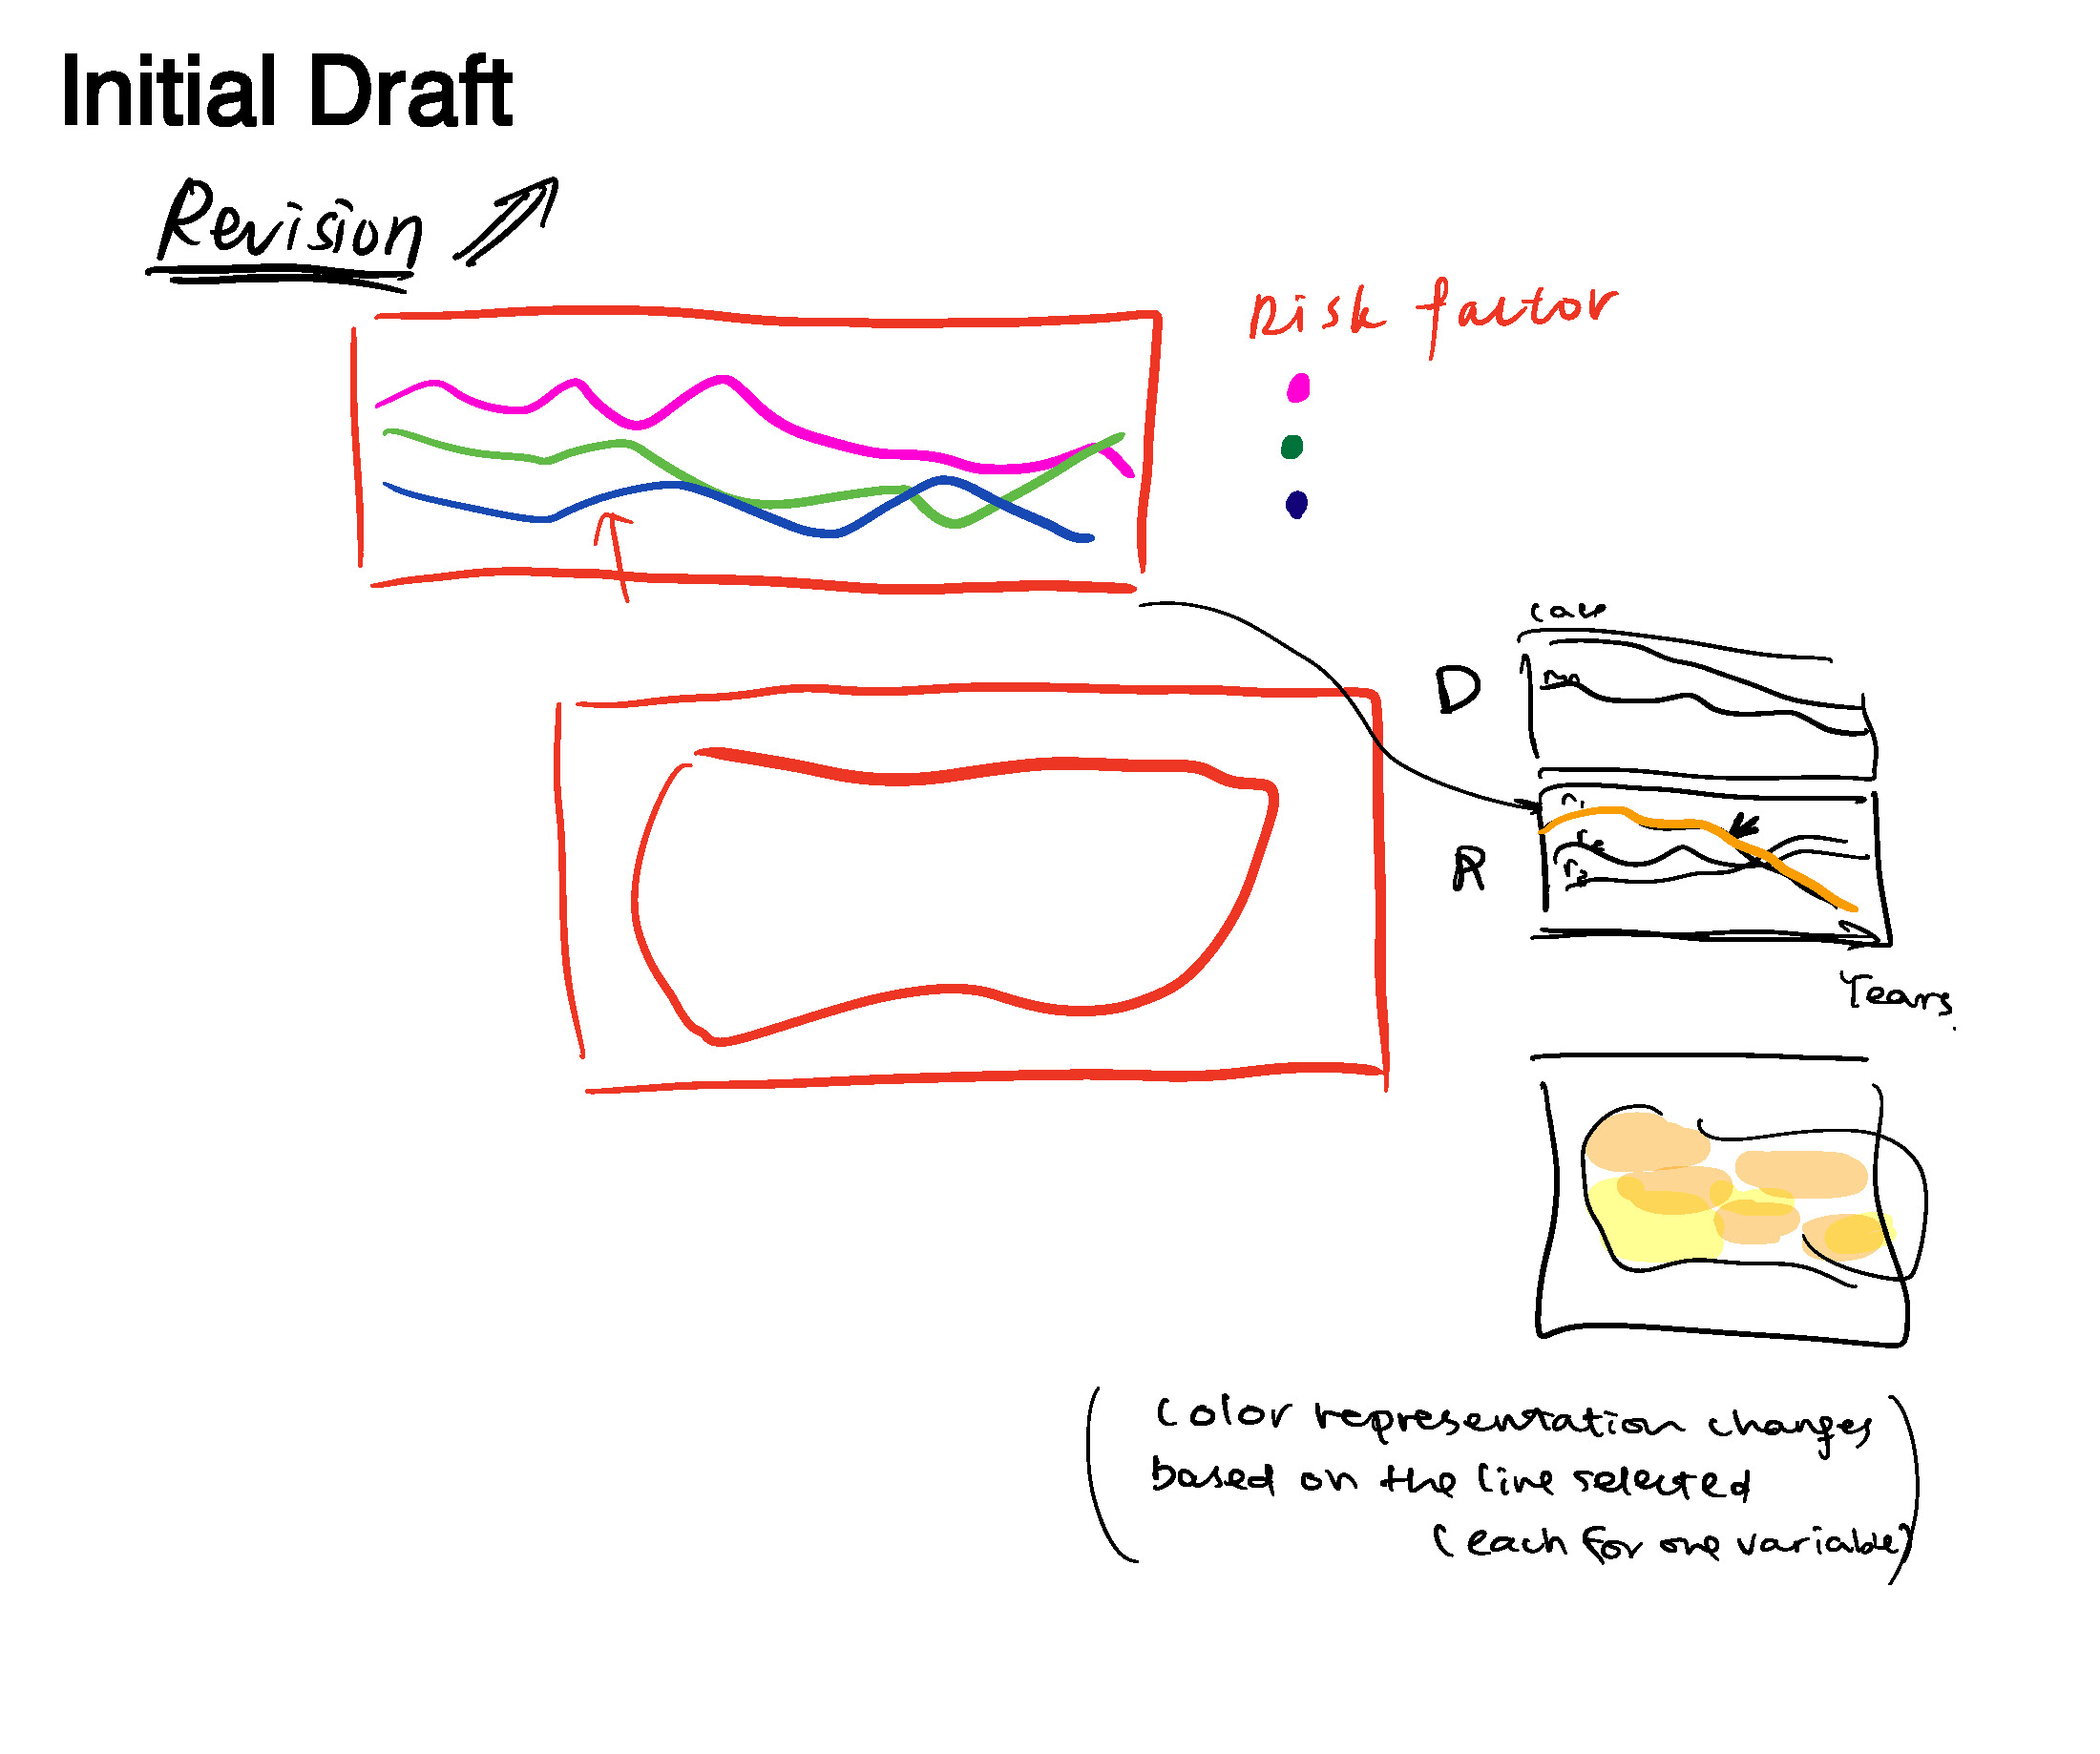 Initial Draft
Revision
Risk factor
D
R
Years
(color representation changes
based on the line selected
(each for one variable))